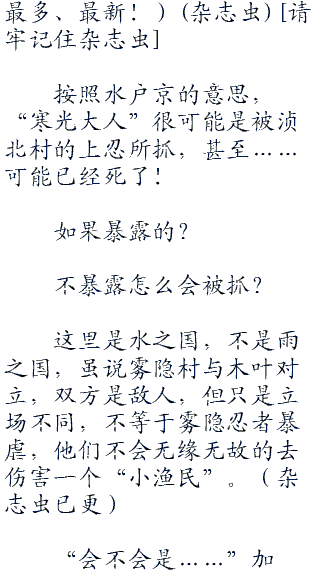 最多、最新！）(杂志虫)[请
牢记住杂志虫]
按照水户京的意思，
“寒光大人”很可能是被浈
北村的上忍所抓，甚至……
可能已经死了！
如果暴露的？
不暴露怎么会被抓？
这里是水之国，不是雨
之国，虽说雾隐村与木叶对
立，双方是敌人，但只是立
场不同，不等于雾隐忍者暴
虐，他们不会无缘无故的去
伤害一个“小渔民”。（杂
志虫已更）
“会不会是……”加